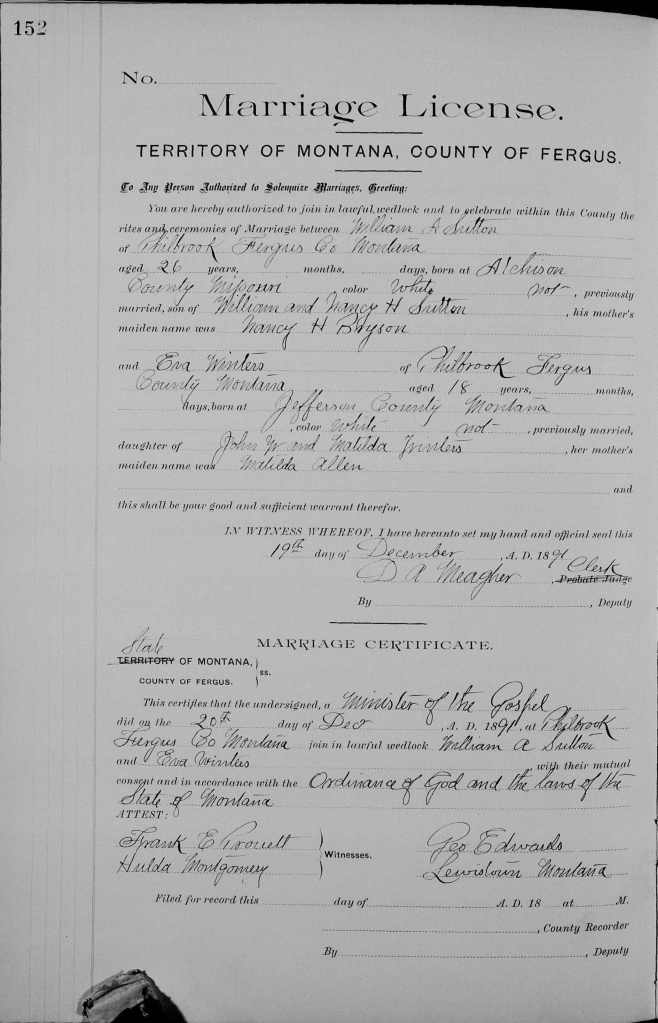 152
No.
Marriage License.
TERRITORY OF MONTANA, COUNTY OF FERGUS.
To Any Person Authorized to Solemnize Marriages, Greeting:
You are hereby authorized to join in lawful wedlock and to celebrate within this County the
rites and ceremonies of Marriage between William A Sutton
of Philbrook Fergus Co Montana
aged 26 years, months, days, born at Atchison
County Missouri color White not , previously
married, son of William and Nancy H Sutton , his mother's
maiden name was Nancy H Bryson
and Eva Winters of Philbrook Fergus
County Montana aged 18 years, months,
days, born at Jefferson County Montana
, color White not , previously married,
daughter of John W and Matilda Winters , her mother's
maiden name was Matilda Allen
and
this shall be your good and sufficient warrant therefor.
IN WITNESS WHEREOF, I have hereunto set my hand and official seal this
19th day of December , A. D. 1891
Clerk
D A Meagher , Probate Judge
By , Deputy
MARRIAGE CERTIFICATE.
State
TERRITORY OF MONTANA, } ss.
COUNTY OF FERGUS.
This certifies that the undersigned, a Minister of the Gospel
did on the 20th day of Dec , A. D. 1891, at Philbrook
Fergus Co Montana join in lawful wedlock William A Sutton
and Eva Winters with their mutual
consent and in accordance with the Ordinance of God and the laws of the
State of Montana
ATTEST:
Frank E } Witnesses. Geo Edwards
Hulda Montgomery Lewistown Montana
Filed for record this day of A. D. 18 at M.
, County Recorder
By , Deputy